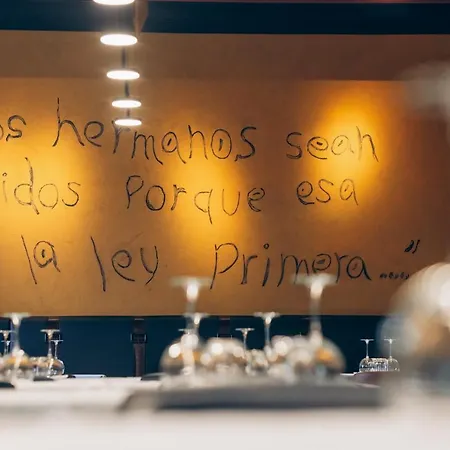 os hermanos sean
idos Porque esa
la ley Primera..."